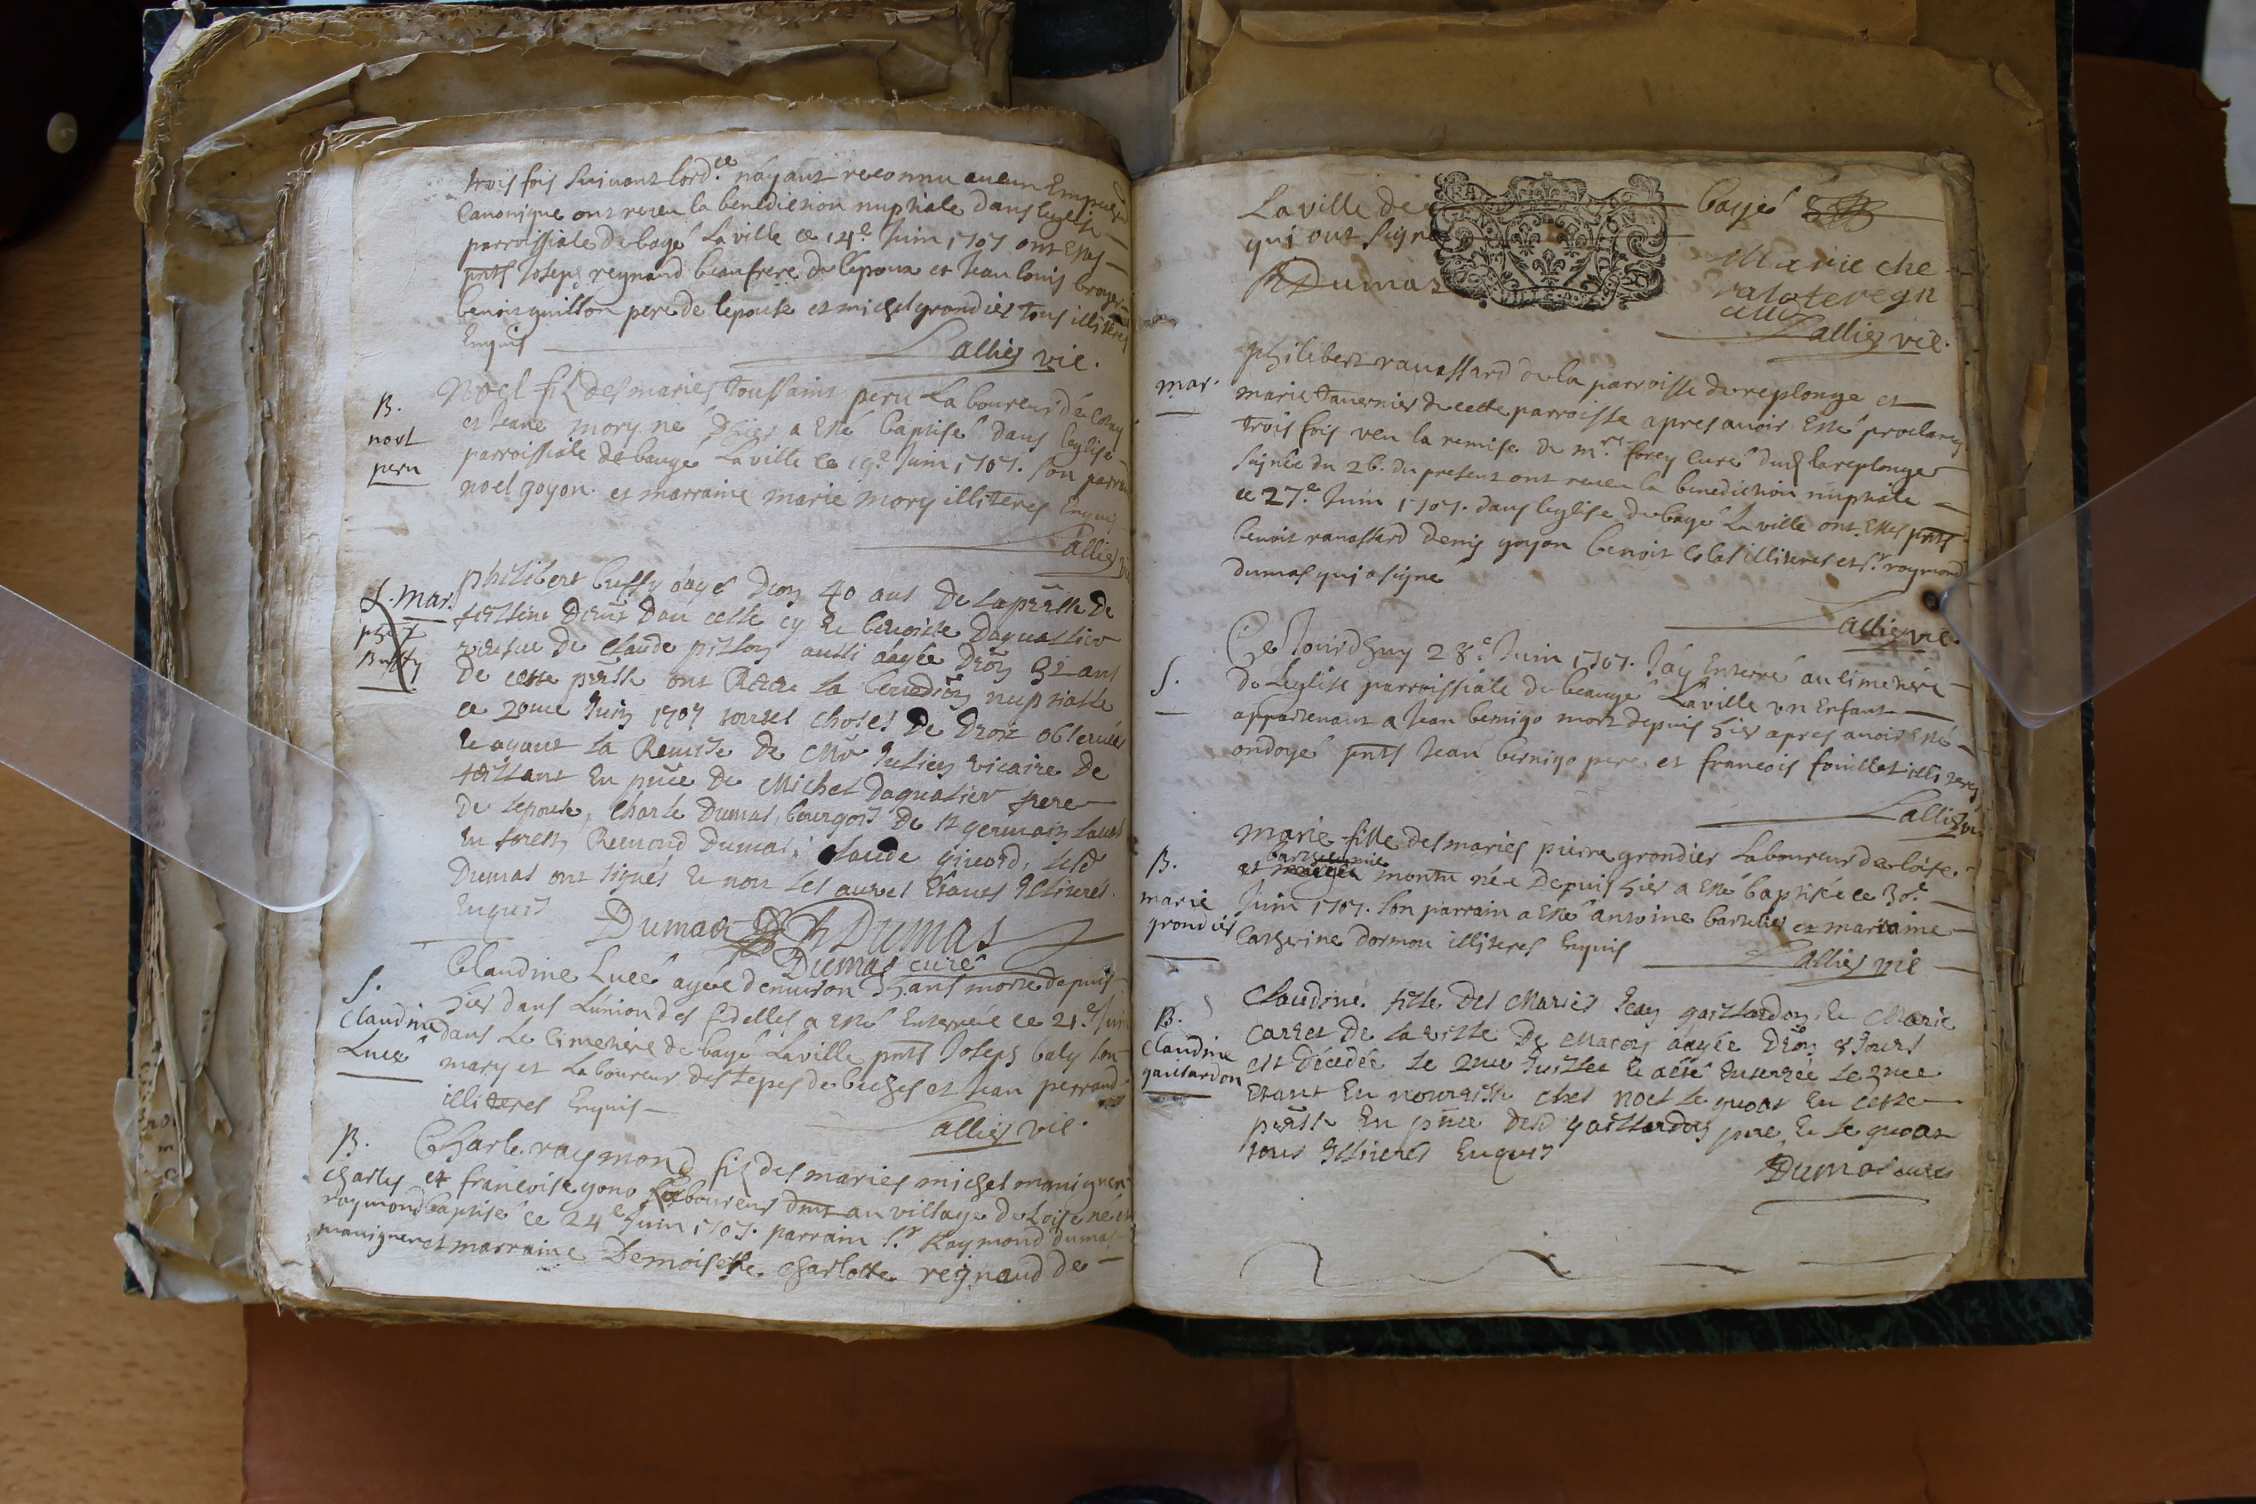 trois fois suivant lord.ce náyant reconnu aucun Empech
Canonique ont receu la benediction nuptiale dans leglise
parroissiale de bagé La ville ce 14.e Juin 1707 ont Estés
pnts Joseph regnaud beaufrere de lépoux et Jean louis broyer
benoit guilton pere de lepouse et michel grandier tous illiteres
Enquis
Lallier vic.
B.
noel
peru
Noel fils des mariés toussaint peru Laboureur
et Jeane mory né d'hier a Esté baptisé dans leglise
parroissiale de baugé La ville ce 19.e Juin 1707. son parrain
noel goyon et marraine marie mory illiteres Enquis
Lallier
mar.
Buffy
philibert buffy áagé Dron 40 ans De la prsse De
cette cy Et benoiste Daguallier
vesue De Claude aussi áagée Dron 32 ans
De cette prsse ont Receu La benedion nuptialle
ce 20me Juin 1707 toutes choses De Droit obseruées
Et ayant La Remise De Mr vicaire De
En pnce De Michel Daguallier pere
De lepouse, Charle Dumas, bourgois De st germain Laual
En forests Remond Dumas, Claude
Dumas ont signés Et non Les autres Estants Illiteres.
Enquis
Dumas R Dumas
Dumas curé
S.
Claudine
Lucé
Claudine Lucé agée denuiron ans morte depuis
hier dans L'union des fidelles a esté Enterrée ce 21.e Juin
dans Le Cimetiere de bagé La ville pnts Joseph baly son
mary et Laboureur des de buchet et Jean perraud
illiteres Enquis
Lallier vic.
B.
Charles
raymond
mauigner
Charle raymond fils des mariés michel mauigner
et francoise gono Laboureurs dmt au village de Loise né et
baptisé ce 24.e Juin 1707. parrain Sr Raymond dumas
et marraine Demoiselle charlotte reignaud de
La ville de bagjé
qui ont signé
R Dumas
Marie che
ralote regn
Lallier vic.
mar.
philibert rauassard de la parroisse de replonge et
marie tauernier de cette parroisse apres auoir Esté proclamés
trois fois veu la remise de mr. forey curé dud replonge
signée du 26. du present ont receu la benediction nuptiale
ce 27.e Juin 1707. dans leglise de bagé La ville ont Estés pnts
benoit rauassard denis goyon benoit Colas illiteres et Sr. raymond
dumas qui a signe
Lallier vic.
S.
Ce Jourdhuy 28.e Juin 1707. Jáy Enterré au cimetiere
de Léglise parroissiale de beaugé La ville vn Enfant
appartenant a Jean bernigo mort depuis hier apres auoir Esté
ondoyé pnts Jean bernigo pere et francois fouillet illiteres
Lallier vic
B.
marie
grandier
Marie fille des mariés pierre grandier Laboureur de loise
barthelemie
et montu née Depuis hier a Esté baptisée ce 30.e
Juin 1707. son parrain a Esté antoine barthelier et marraine
Catherine dormou illiteres Enquis
Lallier vic
B.
Claudine
gaillardon
Claudine fille Des Mariés Jean gaillardon, Et Marie
Carret De La ville De Macon áagée Dron 8 Jours
est Décedée Le 2me Juillet Et a été Enterrée Le 3mee
Etant En nourrisse chez noel Le quoat En cette
prsse En pnce Desd gaillardon pere, Et Le quoat
tous Illiteres Enquis
Dumas curé